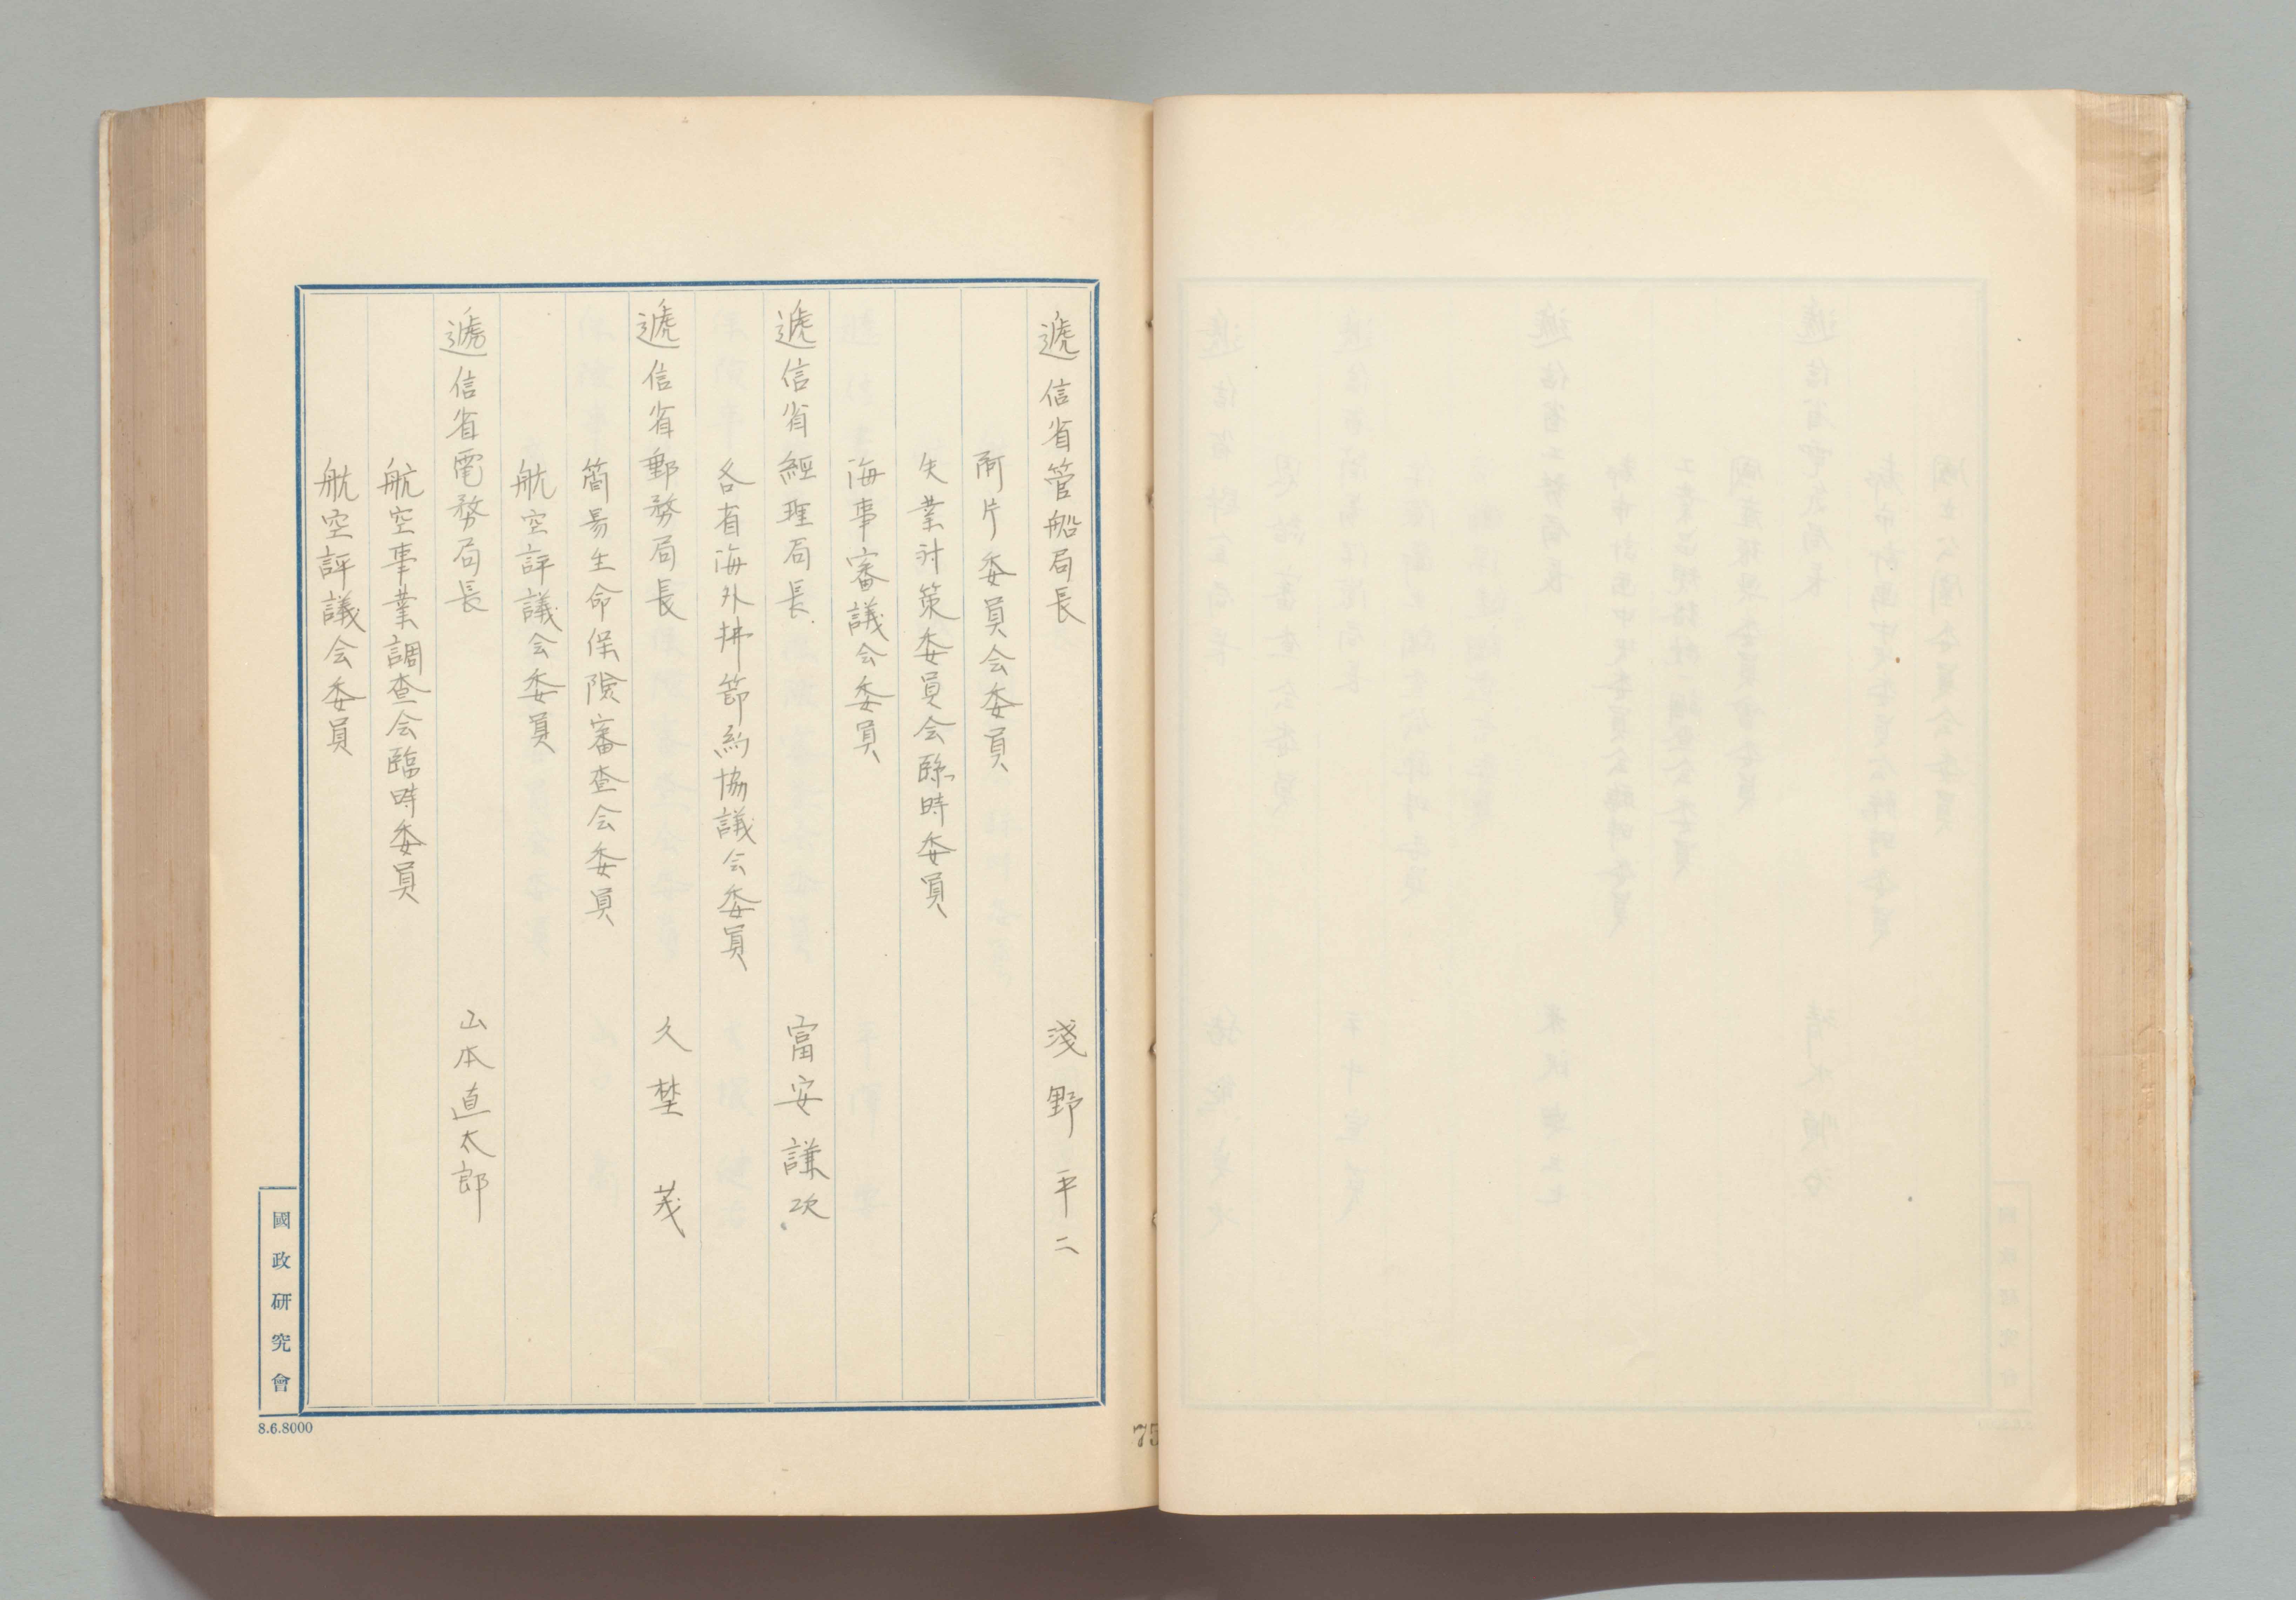 遞信省管船局長　淺野平二
阿片委員会委員
失業対策委員会臨時委員
海事審議会委員
遞信省經理局長　富安謙次
各省海外拂節約協議会委員
遞信省郵務局長　久埜茂
簡易生命保険審査会委員
航空評議会委員
遞信省電務局長　山本直太郎
航空事業調査会臨時委員
航空評議会委員
國政研究會
8.6.8000
75